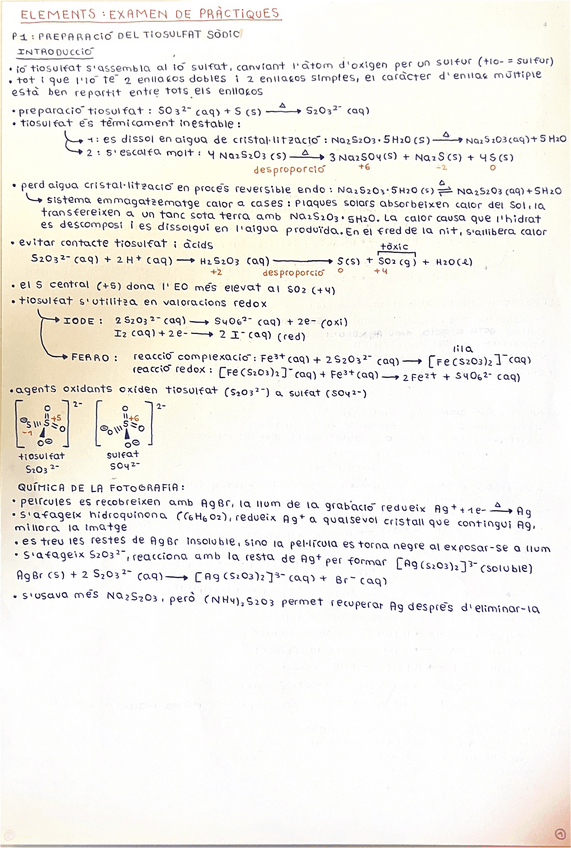 ELEMENTS : EXAMEN DE PRÀCTIQUES
P1 : PREPARACIÓ DEL TIOSULFAT SÒDIC
INTRODUCCIÓ
• ió tiosulfat s'assembla al ió sulfat, canviant l'àtom d'oxigen per un sulfur (tio- = sulfur)
• tot i que l'ió té 2 enllaços dobles i 2 enllaços simples, el caràcter d'enllaç múltiple
està ben repartit entre tots els enllaços
• preparació tiosulfat : SO3²⁻ (aq) + S (s) —Δ→ S2O3²⁻ (aq)
• tiosulfat és tèrmicament inestable :
1 : es dissol en aigua de cristal·lització : Na2S2O3 · 5H2O (s) —Δ→ Na2S2O3 (aq) + 5H2O
2 : s'escalfa molt : 4 Na2S2O3 (s) —Δ→ 3 Na2SO4 (s) + Na2S (s) + 4 S (s)
desproporció +6 -2 0
• perd aigua cristal·lització en procés reversible endo : Na2S2O3 · 5H2O (s) ⇌Δ Na2S2O3 (aq) + 5H2O
→ sistema emmagatzematge calor a cases : plaques solars absorbeixen calor del Sol, la
transfereixen a un tanc sota terra amb Na2S2O3 · 5H2O. La calor causa que l'hidrat
es descompsi i es dissolgui en l'aigua produïda. En el fred de la nit, s'allibera calor
• evitar contacte tiosulfat i àcids
tòxic
S2O3²⁻ (aq) + 2 H⁺ (aq) → H2S2O3 (aq) → S (s) + SO2 (g) + H2O (l)
+2 desproporció 0 +4
• el S central (+5) dona l'EO més elevat al SO2 (+4)
• tiosulfat s'utilitza en valoracions redox
IODE : 2 S2O3²⁻ (aq) → S4O6²⁻ (aq) + 2e- (oxi)
I2 (aq) + 2e- → 2 I⁻ (aq) (red)
lila
FERRO : reacció complexació : Fe³⁺ (aq) + 2 S2O3²⁻ (aq) → [Fe(S2O3)2]⁻ (aq)
reacció redox : [Fe(S2O3)2]⁻ (aq) + Fe³⁺ (aq) → 2 Fe²⁺ + S4O6²⁻ (aq)
• agents oxidants oxiden tiosulfat (S2O3²⁻) a sulfat (SO4²⁻)
O 2- O 2-
⊖S S +5 O ⊖O S +6 O
-1 O⊖ O⊖
tiosulfat sulfat
S2O3²⁻ SO4²⁻
QUÍMICA DE LA FOTOGRAFIA :
• pel·lícules es recobreixen amb AgBr, la llum de la grabació redueix Ag⁺ + 1e- —Δ→ Ag
• s'afageix hidroquinona (C6H6O2), redueix Ag⁺ a qualsevol cristall que contingui Ag,
millora la imatge
• es treu les restes de AgBr insoluble, sino la pel·lícula es torna negre al exposar-se a llum
• s'afageix S2O3²⁻, reacciona amb la resta de Ag⁺ per formar [Ag(S2O3)2]³⁻ (soluble)
AgBr (s) + 2 S2O3²⁻ (aq) → [Ag(S2O3)2]³⁻ (aq) + Br⁻ (aq)
• s'usava més Na2S2O3, però (NH4)2S2O3 permet recuperar Ag després d'eliminar-la
1